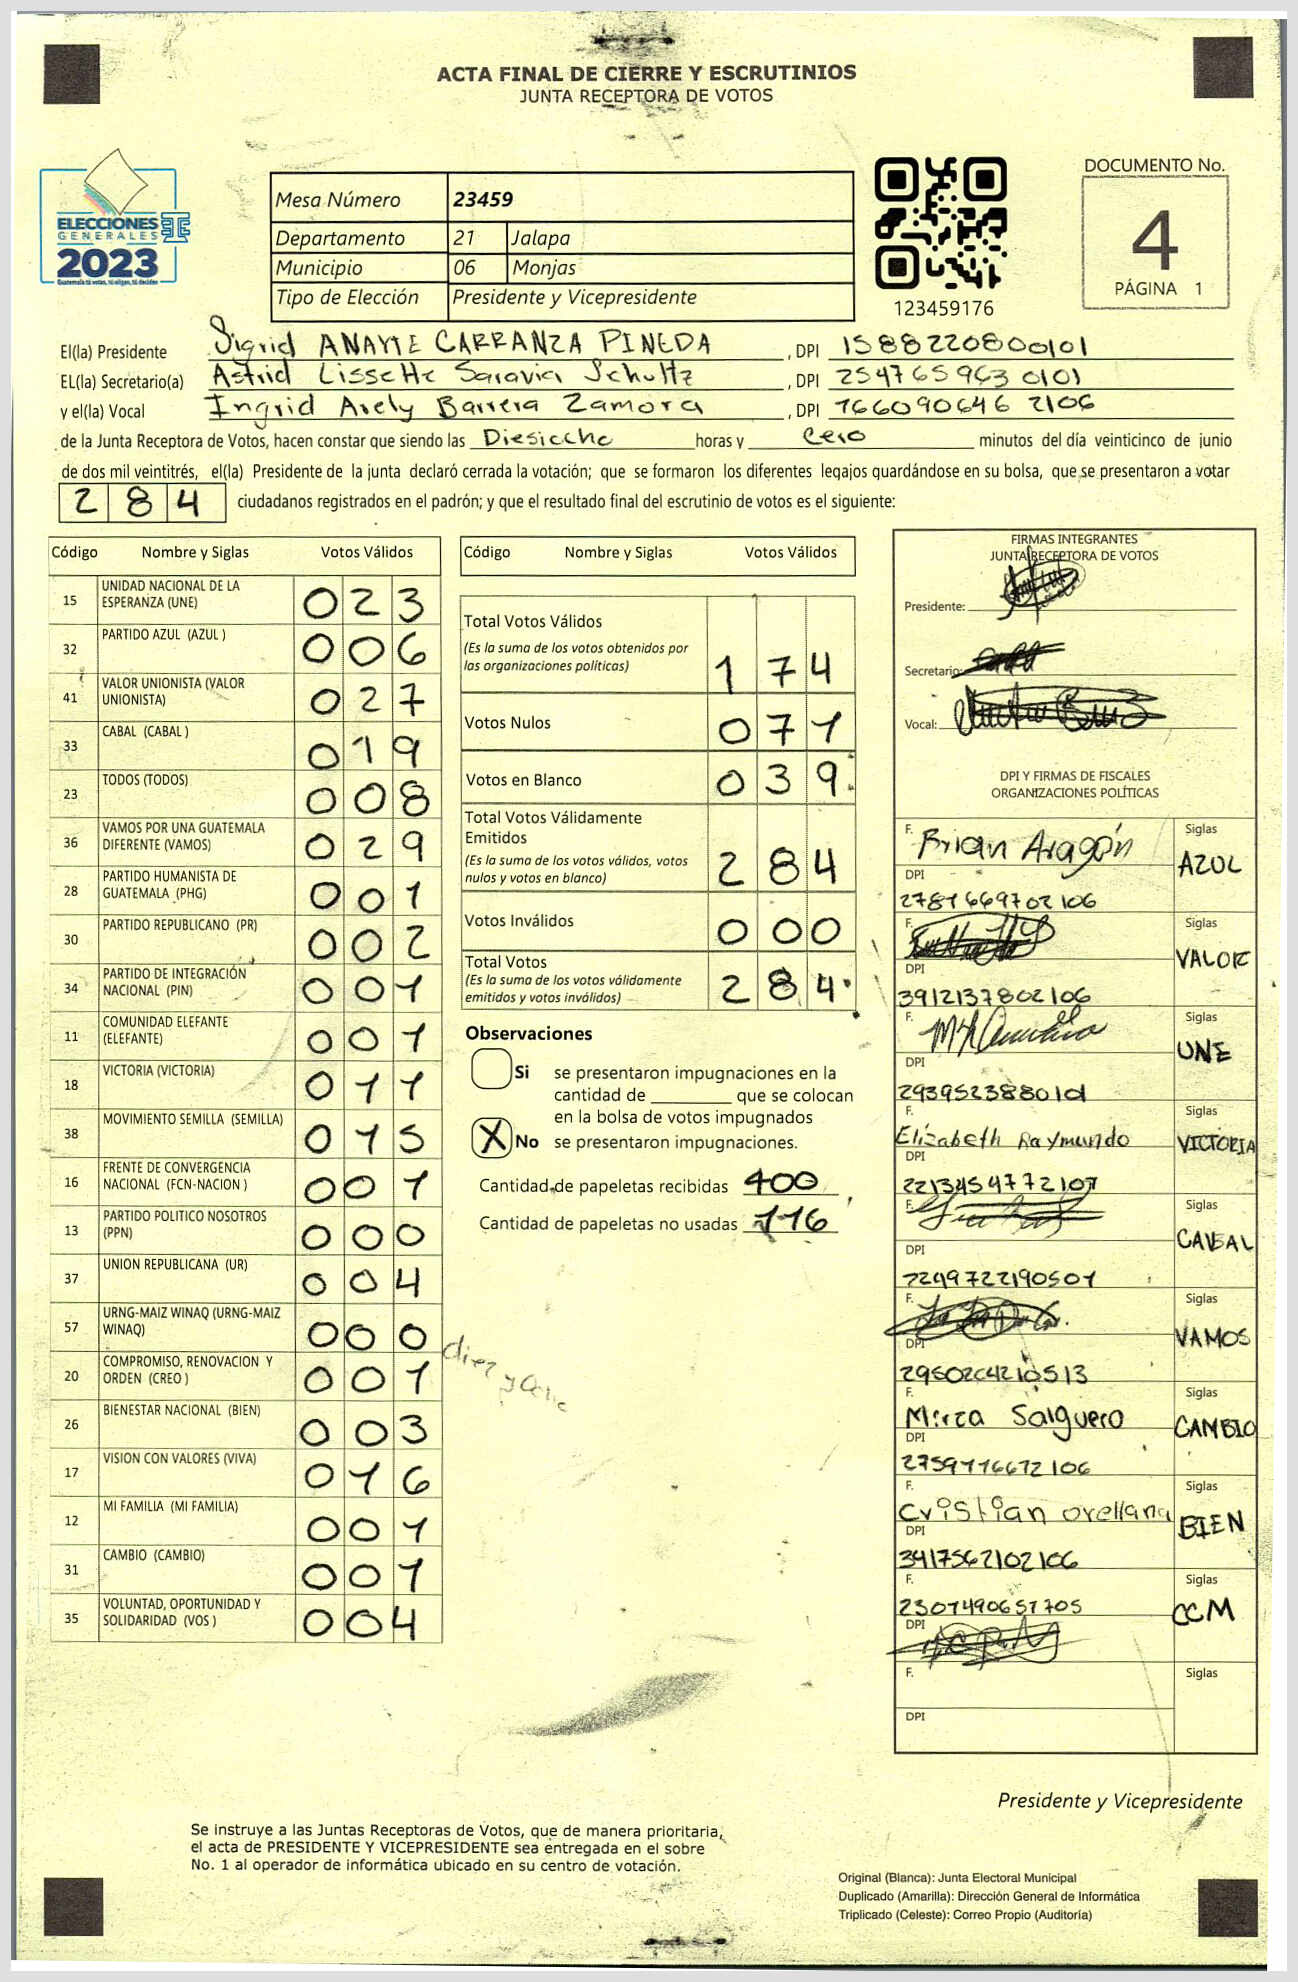 ACTA FINAL DE CIERRE Y ESCRUTINIOS
JUNTA RECEPTORA DE VOTOS
ELECCIONES
GENERALES
2023
Guatemala tú votas, tú eliges, tú decides
Mesa Número 23459
Departamento 21 Jalapa
Municipio 06 Monjas
Tipo de Elección Presidente y Vicepresidente
123459176
DOCUMENTO No.
4
PÁGINA 1
El(la) Presidente Sigrid ANAYTE CARRANZA PINEDA , DPI 1588220800101
EL(la) Secretario(a) Astrid Lissette Saravia Schultz , DPI 254765963 0101
y el(la) Vocal Ingrid Arely Barrera Zamora , DPI 166090646 2106
de la Junta Receptora de Votos, hacen constar que siendo las Diesiocho horas y cero minutos del día veinticinco de junio
de dos mil veintitrés, el(la) Presidente de la junta declaró cerrada la votación; que se formaron los diferentes legajos guardándose en su bolsa, que se presentaron a votar
284 ciudadanos registrados en el padrón; y que el resultado final del escrutinio de votos es el siguiente:
Código Nombre y Siglas Votos Válidos
15 UNIDAD NACIONAL DE LA ESPERANZA (UNE) 023
32 PARTIDO AZUL (AZUL ) 006
41 VALOR UNIONISTA (VALOR UNIONISTA) 027
33 CABAL (CABAL ) 019
23 TODOS (TODOS) 008
36 VAMOS POR UNA GUATEMALA DIFERENTE (VAMOS) 029
28 PARTIDO HUMANISTA DE GUATEMALA (PHG) 001
30 PARTIDO REPUBLICANO (PR) 002
34 PARTIDO DE INTEGRACIÓN NACIONAL (PIN) 001
11 COMUNIDAD ELEFANTE (ELEFANTE) 001
18 VICTORIA (VICTORIA) 011
38 MOVIMIENTO SEMILLA (SEMILLA) 015
16 FRENTE DE CONVERGENCIA NACIONAL (FCN-NACION ) 001
13 PARTIDO POLITICO NOSOTROS (PPN) 000
37 UNION REPUBLICANA (UR) 004
57 URNG-MAIZ WINAQ (URNG-MAIZ WINAQ) 000
20 COMPROMISO, RENOVACION Y ORDEN (CREO ) 001
26 BIENESTAR NACIONAL (BIEN) 003
17 VISION CON VALORES (VIVA) 016
12 MI FAMILIA (MI FAMILIA) 001
31 CAMBIO (CAMBIO) 001
35 VOLUNTAD, OPORTUNIDAD Y SOLIDARIDAD (VOS ) 004
diez y
Código Nombre y Siglas Votos Válidos
Total Votos Válidos
(Es la suma de los votos obtenidos por
las organizaciones políticas) 174
Votos Nulos 071
Votos en Blanco 039
Total Votos Válidamente
Emitidos
(Es la suma de los votos válidos, votos
nulos y votos en blanco) 284
Votos Inválidos 000
Total Votos
(Es la suma de los votos válidamente
emitidos y votos inválidos) 284
Observaciones
Si se presentaron impugnaciones en la
cantidad de ________ que se colocan
en la bolsa de votos impugnados
X No se presentaron impugnaciones.
Cantidad de papeletas recibidas 400
Cantidad de papeletas no usadas 116
FIRMAS INTEGRANTES
JUNTA RECEPTORA DE VOTOS
Presidente:
Secretario:
Vocal:
DPI Y FIRMAS DE FISCALES
ORGANIZACIONES POLÍTICAS
F. Brian Aragón Siglas AZUL
DPI 2781669702106
F. Siglas VALOR
DPI 3912137802106
F. Siglas UNE
DPI 2939523880101
F. Elizabeth Raymundo Siglas VICTORIA
DPI 2213454772107
F. Siglas CABAL
DPI 7249722190501
F. Siglas VAMOS
DPI 2950264210513
F. Mirza Salguero Siglas CAMBIO
DPI 2759776672106
F. Cristian orellana Siglas BIEN
DPI 3417562102106
F. 2307490651705 Siglas CCM
DPI
F. Siglas
DPI
Presidente y Vicepresidente
Se instruye a las Juntas Receptoras de Votos, que de manera prioritaria,
el acta de PRESIDENTE Y VICEPRESIDENTE sea entregada en el sobre
No. 1 al operador de informática ubicado en su centro de votación.
Original (Blanca): Junta Electoral Municipal
Duplicado (Amarilla): Dirección General de Informática
Triplicado (Celeste): Correo Propio (Auditoría)